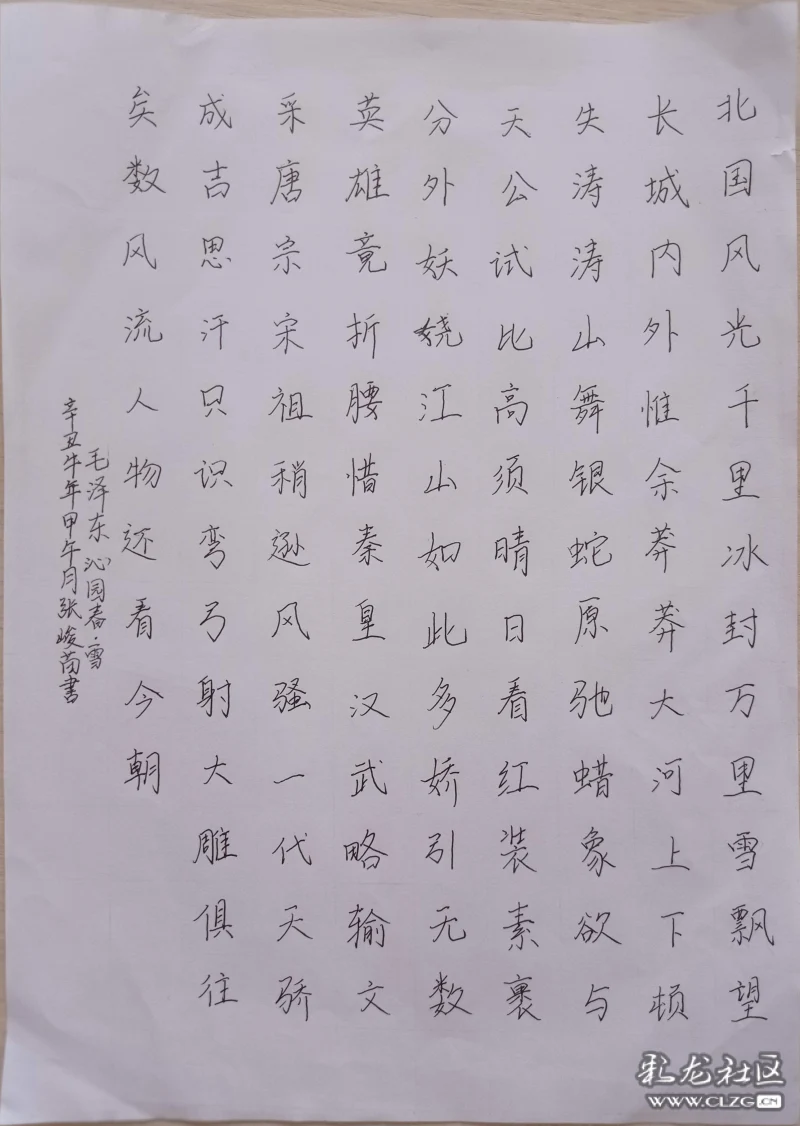 北国风光千里冰封万里雪飘望
长城内外惟余莽莽大河上下顿
失涛涛山舞银蛇原驰蜡象欲与
天公试比高须晴日看红装素裹
分外妖娆江山如此多娇引无数
英雄竟折腰惜秦皇汉武略输文
采唐宗宋祖稍逊风骚一代天骄
成吉思汗只识弯弓射大雕俱往
矣数风流人物还看今朝
毛泽东 沁园春·雪
辛丑牛年甲午月张峻苗書
彩龙社区
WWW.CLZG.CN